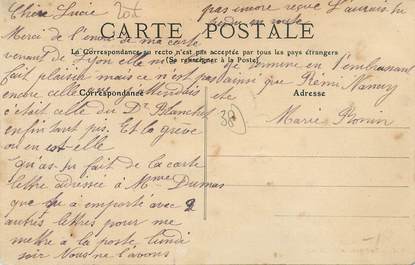 Chère Lucie
Merci de l'envoi de ma carte
venant de Lyon elle m'a
fait plaisir mais ce n'est pas
encore celle que j'attendais
c'était celle du Dr Blanchet
enfin tant pis. Et la grève
où en est-elle
qu'as tu fait de la carte
lettre adressée à Mme Dumas
que tu a emporté avec 2
autres lettres pour me
mettre à la poste, lundi
soir Nous ne l'avons
pas encore reçue L'aurais-tu
perdu en route
Je termine en t'embrassant
ainsi que Rémi, Nancy
etc
Marie Bonin
20f
CARTE POSTALE
La Correspondance au recto n'est pas acceptée par tous les pays étrangers
(Se renseigner à la Poste)
Correspondance
Adresse
38